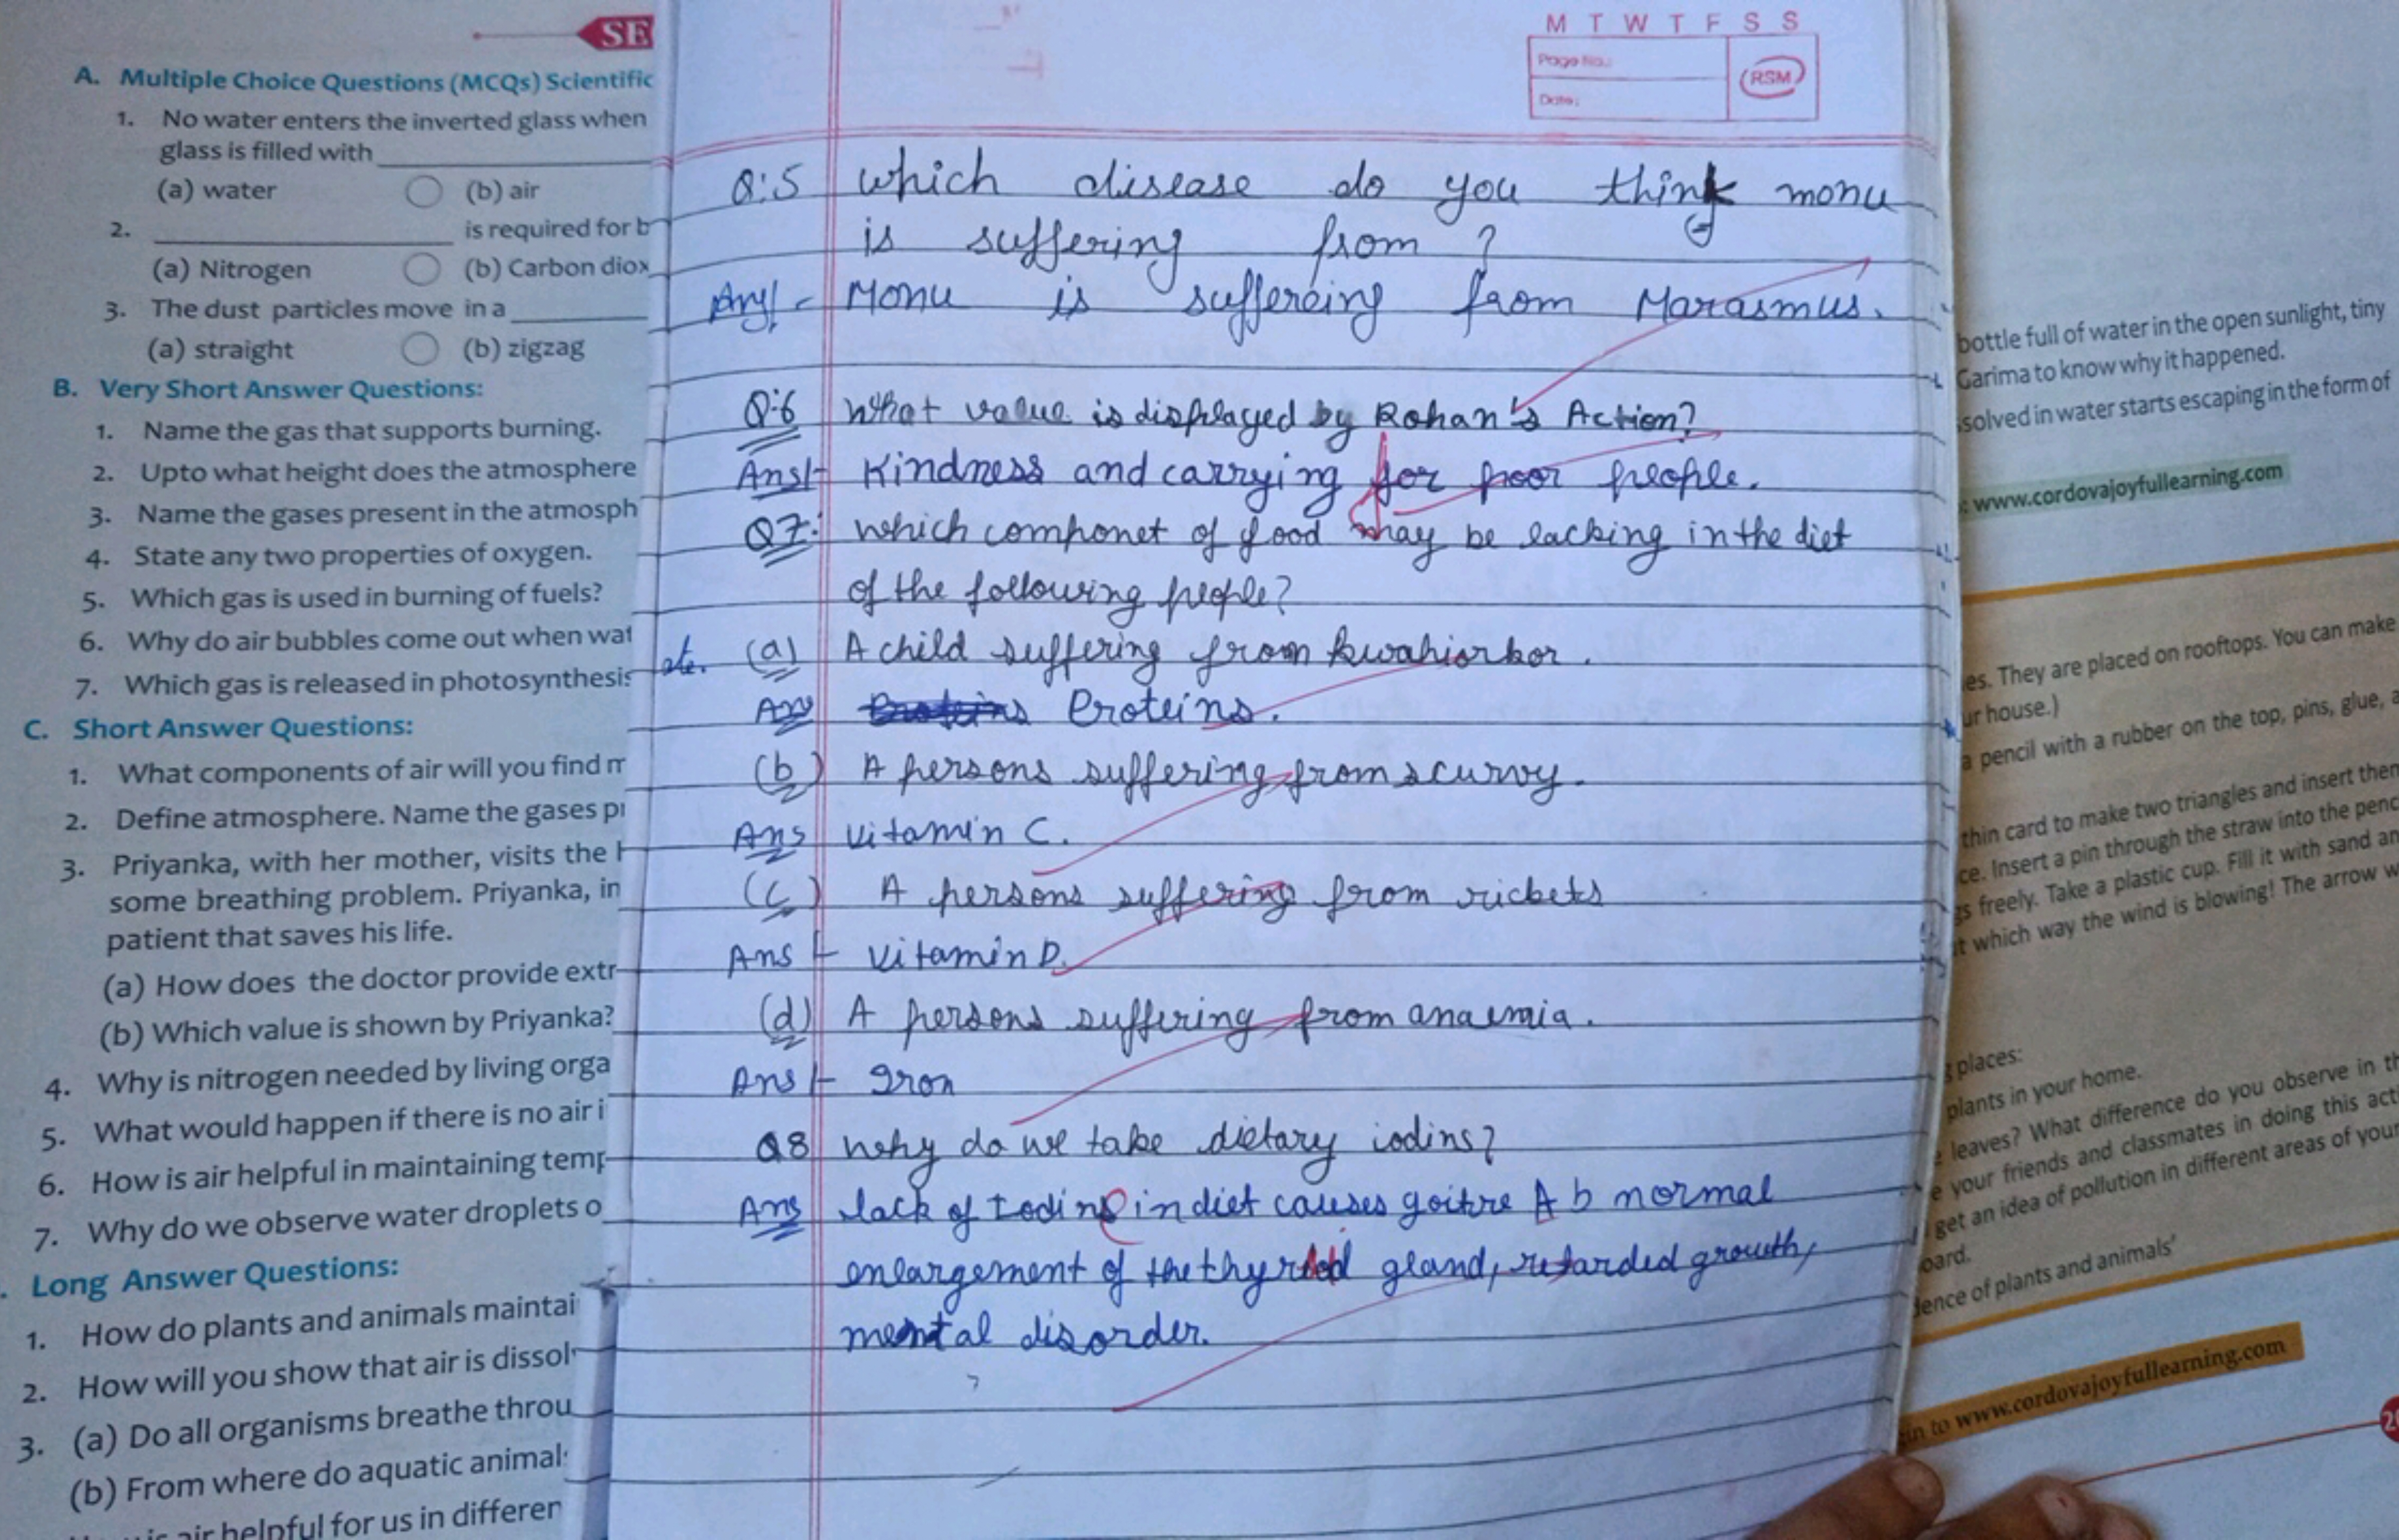 SE
A. Multiple Choice Questions (MCQs) Scientific
1. No water enters the inverted glass when
glass is filled with
(a) water (b) air
2. is required for b
(a) Nitrogen (b) Carbon diox
3. The dust particles move in a
(a) straight (b) zigzag
B. Very Short Answer Questions:
1. Name the gas that supports burning.
2. Upto what height does the atmosphere
3. Name the gases present in the atmosph
4. State any two properties of oxygen.
5. Which gas is used in burning of fuels?
6. Why do air bubbles come out when wat
7. Which gas is released in photosynthesis
C. Short Answer Questions:
1. What components of air will you find m
2. Define atmosphere. Name the gases pr
3. Priyanka, with her mother, visits the h
some breathing problem. Priyanka, in
patient that saves his life.
(a) How does the doctor provide extr
(b) Which value is shown by Priyanka?
4. Why is nitrogen needed by living orga
5. What would happen if there is no air i
6. How is air helpful in maintaining temp
7. Why do we observe water droplets o
Long Answer Questions:
1. How do plants and animals maintai
2. How will you show that air is dissol
3. (a) Do all organisms breathe throu
(b) From where do aquatic animal
air helpful for us in differen
M T W T F S S
Page No.:
Date:
RSM
Q:5 which disease do you think monu
is suffering from ?
Ans - Monu is suffereing from Marasmus.
Q:6 What value is displayed by Rohan's Action?
Ans - Kindness and carrying for poor people.
Q7: which componet of food may be lacking in the diet
of the following people?
(a) A child suffering from kwahiorkor.
Ans Proteins.
(b) A persons suffering from scurvy.
Ans vitamin C.
(c) A persons suffering from rickets
Ans - vitamin D.
(d) A persons suffering from anaemia.
Ans - Iron
Q8 why do we take dietary iodins?
Ans lack of Iodine in diet causes goitre Ab normal
enlargement of the thyroid gland, retarded growth,
mental disorder.
bottle full of water in the open sunlight, tiny
Garima to know why it happened.
solved in water starts escaping in the form of
www.cordovajoyfullearning.com
es. They are placed on rooftops. You can make
ur house.)
a pencil with a rubber on the top, pins, glue, a
thin card to make two triangles and insert them
ce. Insert a pin through the straw into the penc
gs freely. Take a plastic cup. Fill it with sand an
t which way the wind is blowing! The arrow w
g places:
plants in your home.
leaves? What difference do you observe in th
e your friends and classmates in doing this acti
get an idea of pollution in different areas of your
oard.
dence of plants and animals'
in to www.cordovajoyfullearning.com